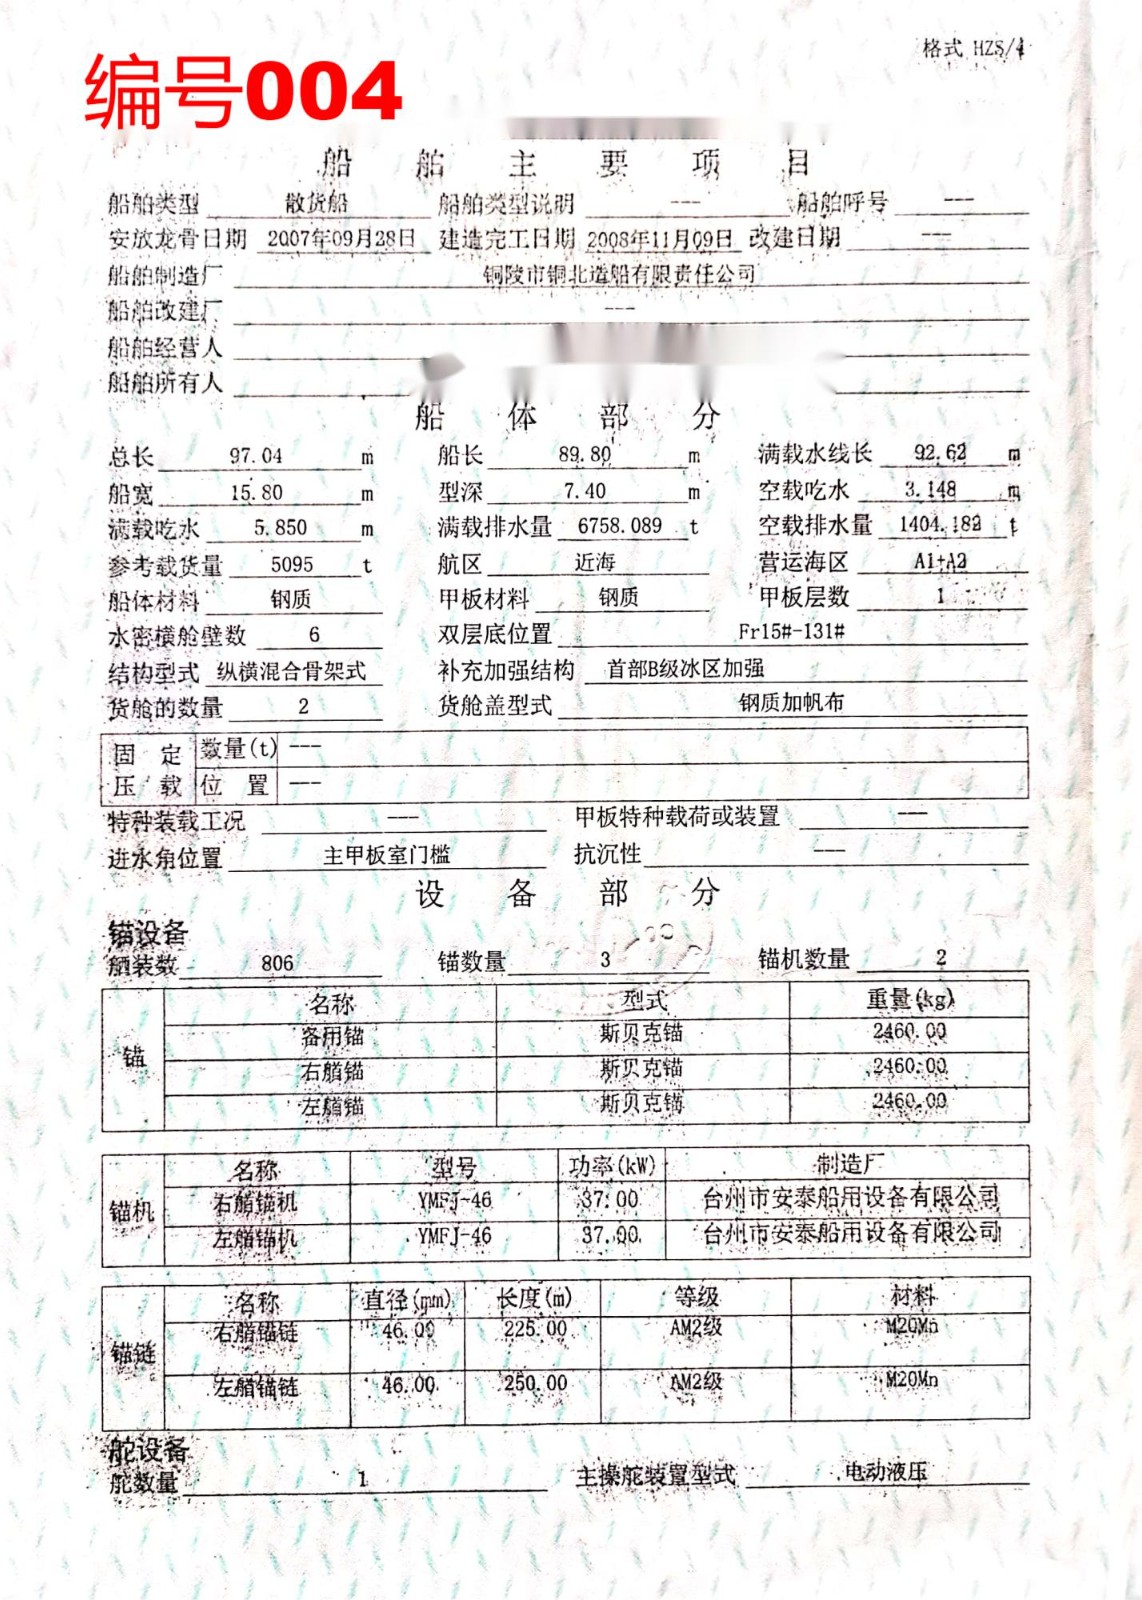 格式 HZS/4
编号004
船舶主要项目
船舶类型 散货船 船舶类型说明 --- 船舶呼号 ---
安放龙骨日期 2007年09月28日 建造完工日期 2008年11月09日 改建日期 ---
船舶制造厂 铜陵市铜北造船有限责任公司
船舶改建厂 ---
船舶经营人
船舶所有人
船体部分
总长 97.04 m 船长 89.80 m 满载水线长 92.62 m
船宽 15.80 m 型深 7.40 m 空载吃水 3.148 m
满载吃水 5.850 m 满载排水量 6758.089 t 空载排水量 1404.182 t
参考载货量 5095 t 航区 近海 营运海区 A1+A2
船体材料 钢质 甲板材料 钢质 甲板层数 1
水密横舱壁数 6 双层底位置 Fr15#-131#
结构型式 纵横混合骨架式 补充加强结构 首部B级冰区加强
货舱的数量 2 货舱盖型式 钢质加帆布
固定压载 数量(t) ---
位置 ---
特种装载工况 --- 甲板特种载荷或装置 ---
进水角位置 主甲板室门槛 抗沉性 ---
设备部分
锚设备
舾装数 806 锚数量 3 锚机数量 2
锚 名称 型式 重量(kg)
备用锚 斯贝克锚 2460.00
右艏锚 斯贝克锚 2460.00
左艏锚 斯贝克锚 2460.00
锚机 名称 型号 功率(kW) 制造厂
右艏锚机 YMFJ-46 37.00 台州市安泰船用设备有限公司
左艏锚机 YMFJ-46 37.00 台州市安泰船用设备有限公司
锚链 名称 直径(mm) 长度(m) 等级 材料
右艏锚链 46.00 225.00 AM2级 M20Mn
左艏锚链 46.00 250.00 AM2级 M20Mn
舵设备
舵数量 1 主操舵装置型式 电动液压